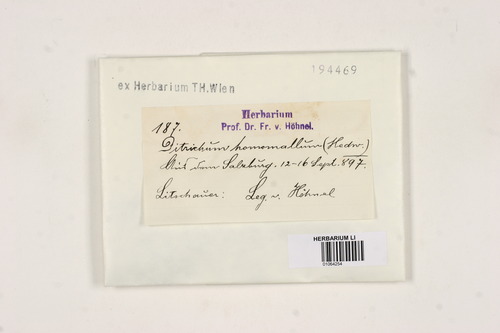 194469
ex Herbarium TH.Wien
Herbarium
Prof. Dr. Fr. v. Höhnel.
187.
Ditrichum homomallum (Hedw.)
Aus dem Salzburg. 12-16 Sept. 897.
Litschauer: Leg. v. Höhnel
HERBARIUM LI
01064254